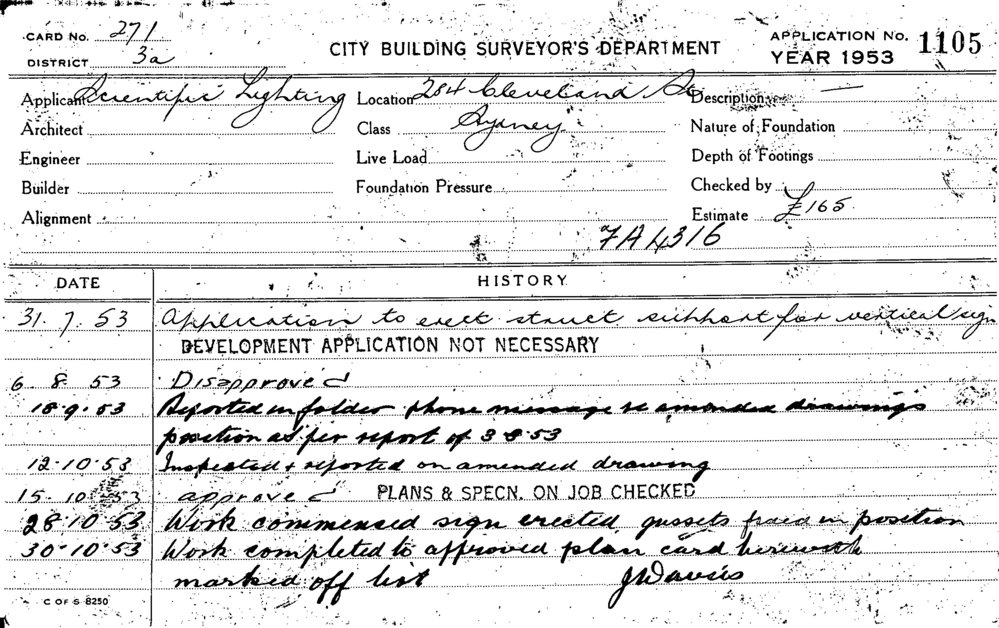 CARD No. 271
DISTRICT 3a
CITY BUILDING SURVEYOR'S DEPARTMENT
APPLICATION No. 1105
YEAR 1953
Applicant Scientific Lighting Location 284 Cleveland St Description —
Architect Class Sydney Nature of Foundation
Engineer Live Load Depth of Footings
Builder Foundation Pressure Checked by
Alignment Estimate £165
7A4316
DATE HISTORY
31. 7. 53 Application to erect struct support for vertical sign
DEVELOPMENT APPLICATION NOT NECESSARY
6. 8. 53 Disapproved
18.9.53 Reported in folder phone message re amended drawings
position as per report of 3 8 53
12.10.53 Inspected & reported on amended drawing
15. 10. 53 approved PLANS & SPECN. ON JOB CHECKED
28.10.53 Work commenced sign erected gussets fixed in position
30.10.53 Work completed to approved plan card herewith
marked off list JWDavies
C OF S 8250